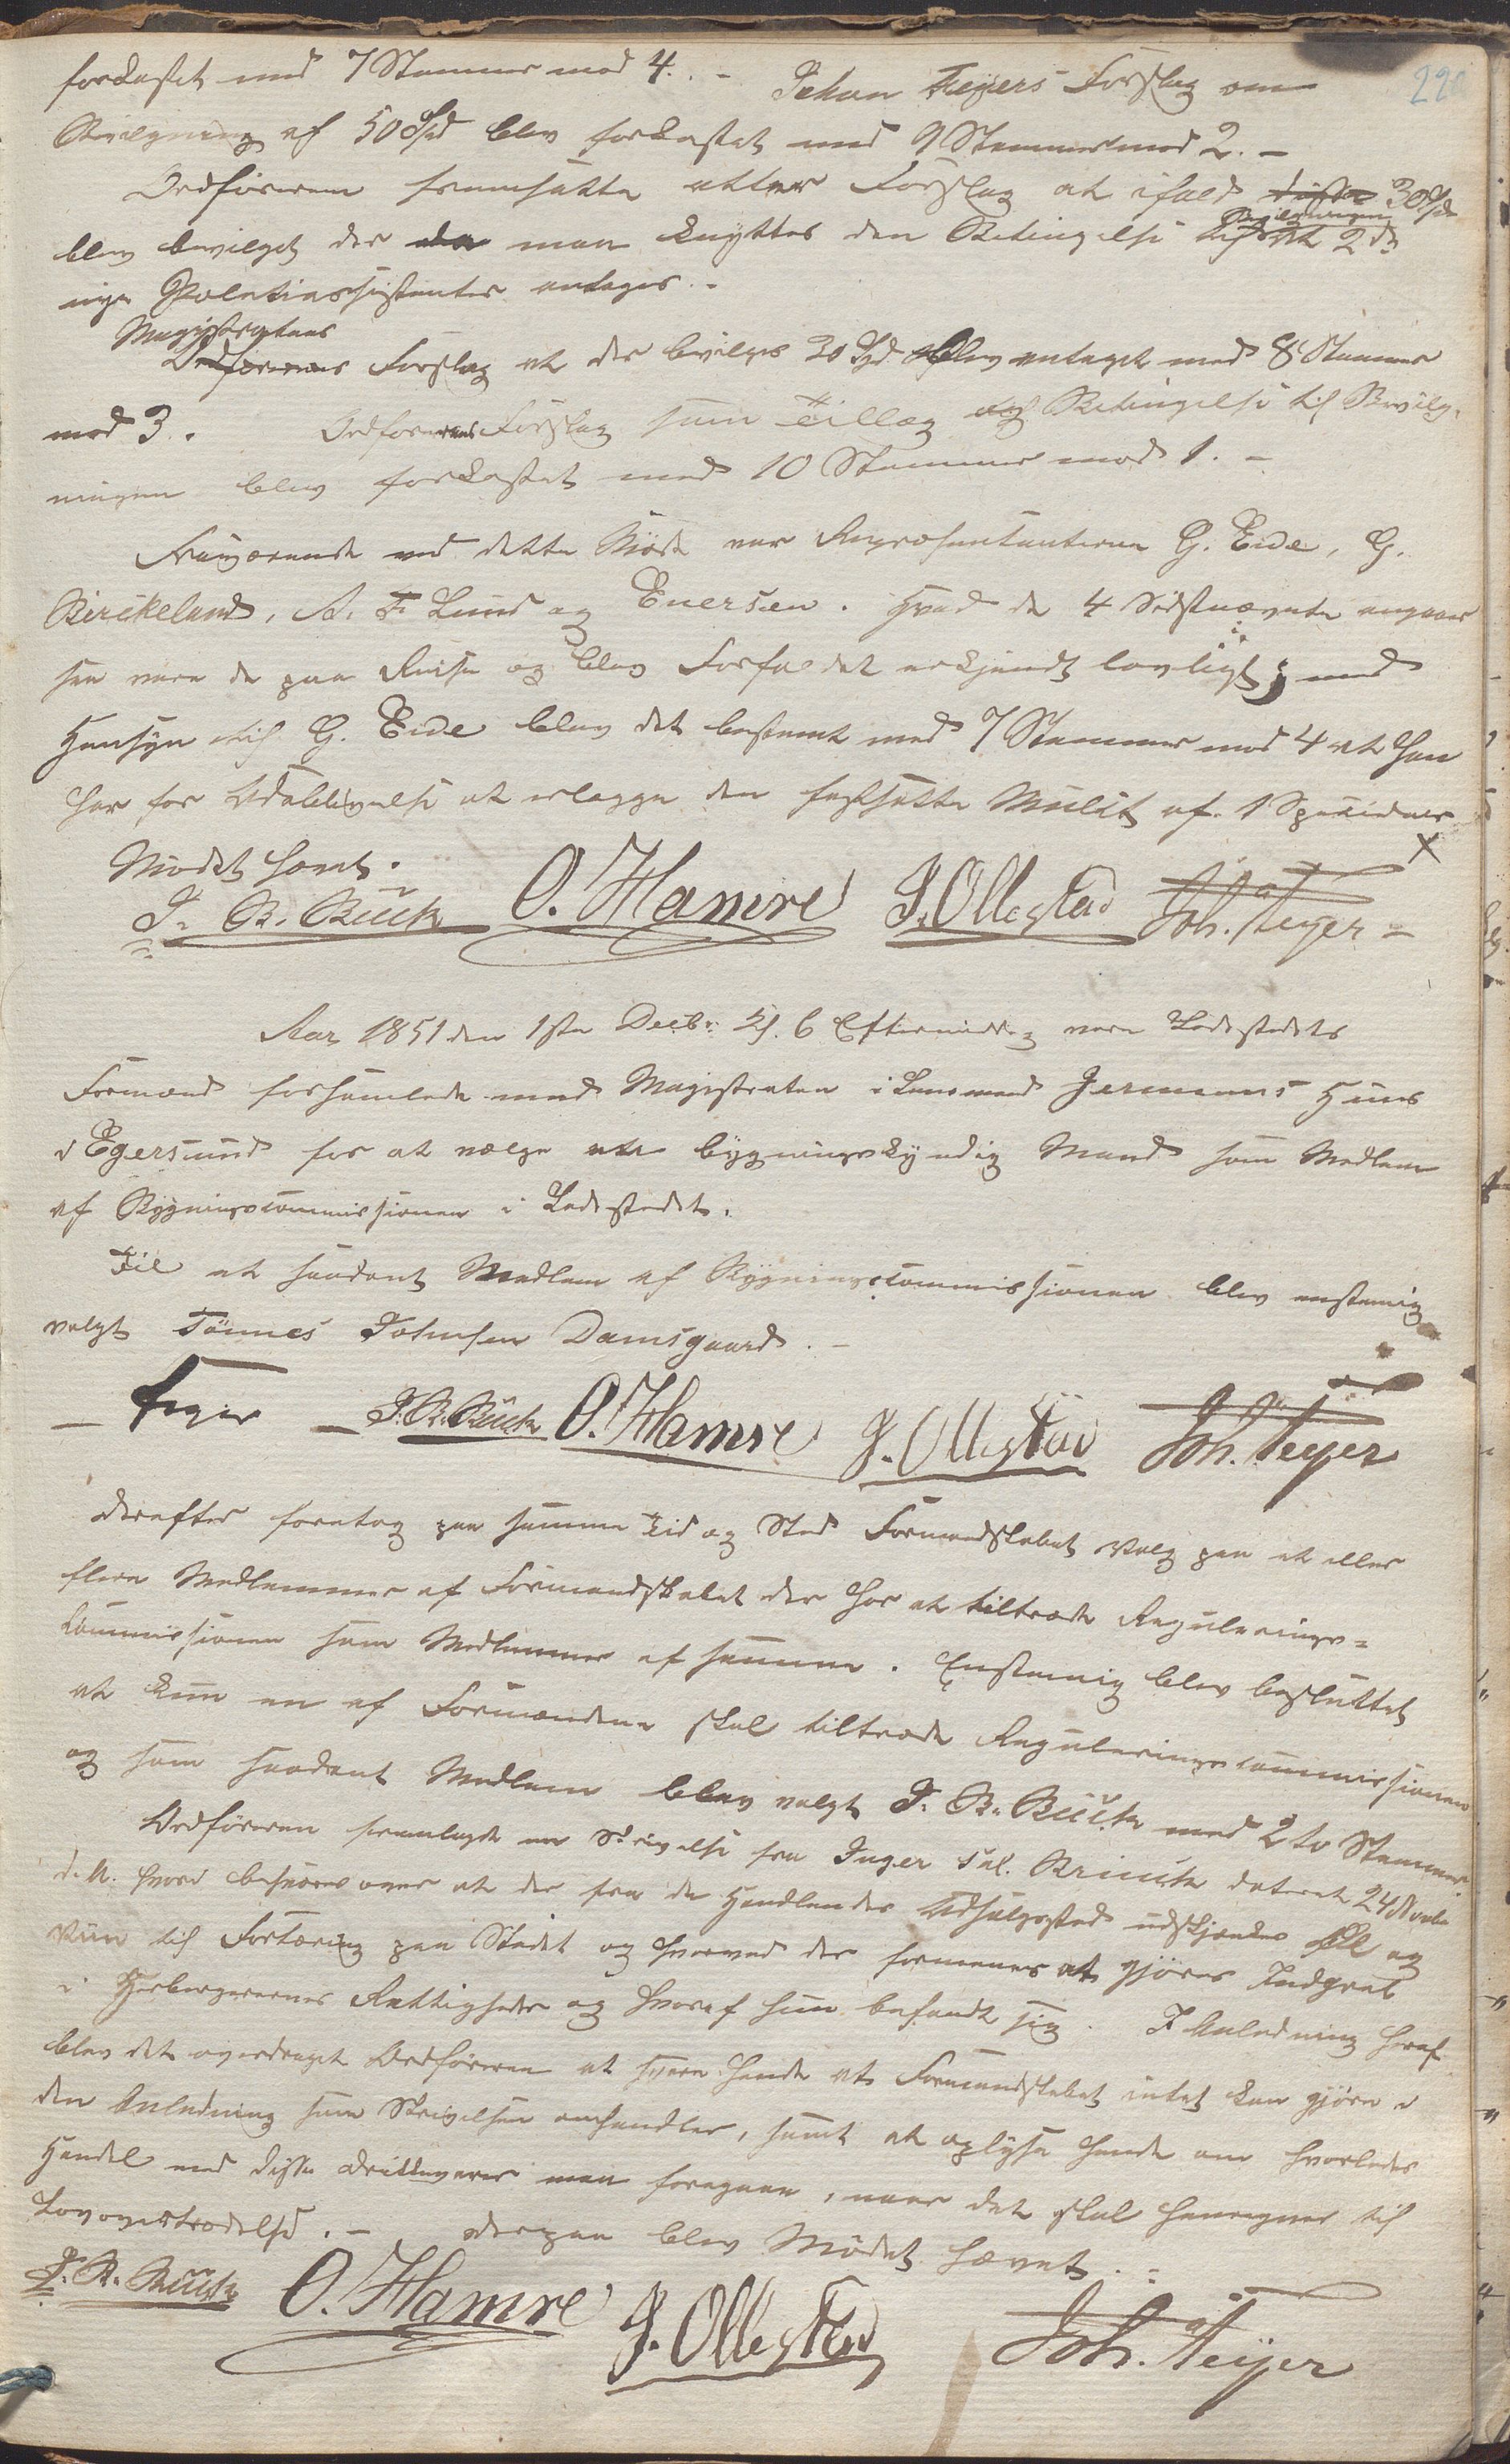 forkastet med 7 Stemmer mod 4. - Johan Feyers Forslag om
Bevilgning af 50 Spd blev forkastet med 9 Stemmer mod 2. -
Ordføreren fremsatte atter Forslag at ifald disse 30 Spd
blev bevilget der da maa knyttes den Betingelse til Bevilgningen at 2de
nye Politiassistenter antages. -
Magistratens
Ordførerens Forslag at der bevilges 30 Spd blev antaget med 8 Stemmer
mod 3. Ordførerens Forslag som Tillæg og Betingelse til Bevilg-
ningen blev forkastet med 10 Stemmer mod 1. -
Fraværende ved dette Møde var Repræsentanterne G. Eide, G.
Birkeland, A. F. Lund og Evensen. Hvad de 4 Sidstnævnte angaaer
saa vare de paa Reise og blev Forfaldet erkjendt lovligt; med
Hensyn til G. Eide blev det bestemt med 7 Stemmer mod 4 at han
har for Udeblivelse at erlægge den fastsatte Mulct af 1 Speciedaler
X
Mødet hævet.
J. R. Buck O. Hamre J. Ollestad Joh. Feyer -
Aar 1851 den 1ste Decbr. Kl. 6 Eftermiddag vare Ladestedets
Formænd forsamlede med Magistraten i Lensmand Jermanns Huus
i Egersund for at vælge en bygningskyndig Mand som Medlem
af Bygningscommissionen i Ladestedet.
Til et saadant Medlem af Bygningscommissionen blev enstemig
valgt Tønnes Tolmsen Damsgaard. -
- Feyer - J. R. Buck O. Hamre J. Ollestad Joh. Feyer
Derefter foretog paa samme Tid og Sted Formandskabet Valg paa et eller
flere Medlemmer af Formandskabet der har at tiltræde Regulerings=
Commissionen som Medlemmer af samme. Enstemig blev besluttet
at kun en af Formændene skal tiltræde Reguleringscommissionen
og som saadant Medlem blev valgt J. R. Buck med 2 to Stemmer.
Ordføreren fremlagde en Skrivelse fra Inger sal. Brinch dateret 24 Novbr
d. A. hvori besværes over at der fra de Handlendes Udsalgssted udskjænkes Øl og
Viin til Fortæring paa Stedet og hvorved der formenes at gjøres Indgreb
i Herbergerernes Rettigheder og hvoraf hun befandt sig. I Anledning heraf
blev det overdraget Ordføreren at svare hende at Formandskabet intet kan gjøre i
den Anledning som Skrivelsen omhandler, samt at oplyse hende om hvorledes
Handel med disse Drikkevarer maa foregaae, naar det skal henregnes til
Lovovertrædelse. - Derpaa blev Mødet hævet. -
J. R. Buck O. Hamre J. Ollestad Joh. Feyer